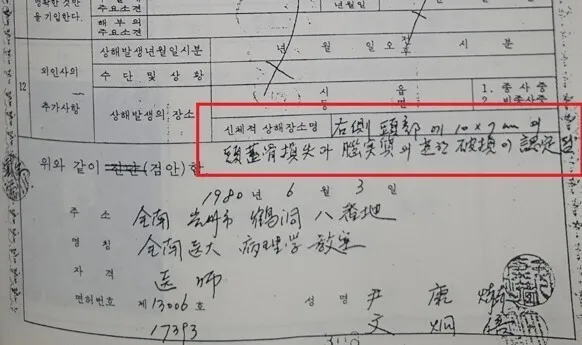 명확한 것만
을 기입한다.
의
주요소견
년월일
해부의
주요소견
12
외인사의
추가사항
상해발생년월일시분
년 월 일 오전후 시 분
수단 및 상황
상해발생의 장소
시 읍
동 면
1. 종사중
2. 비종사중
신체적 상해장소명 右側 頭部에 10×7 cm의
頭蓋骨損失과 腦実質의 破損이 認定됨
위와 같이 진단(검안)함
1980 년 6 월 3 일
주 소 全南 光州市 鶴洞 八番地
명 칭 全南医大 病理学 教室
자 격 医師
면허번호 제 13006 호 성 명 尹
17393 文 炯